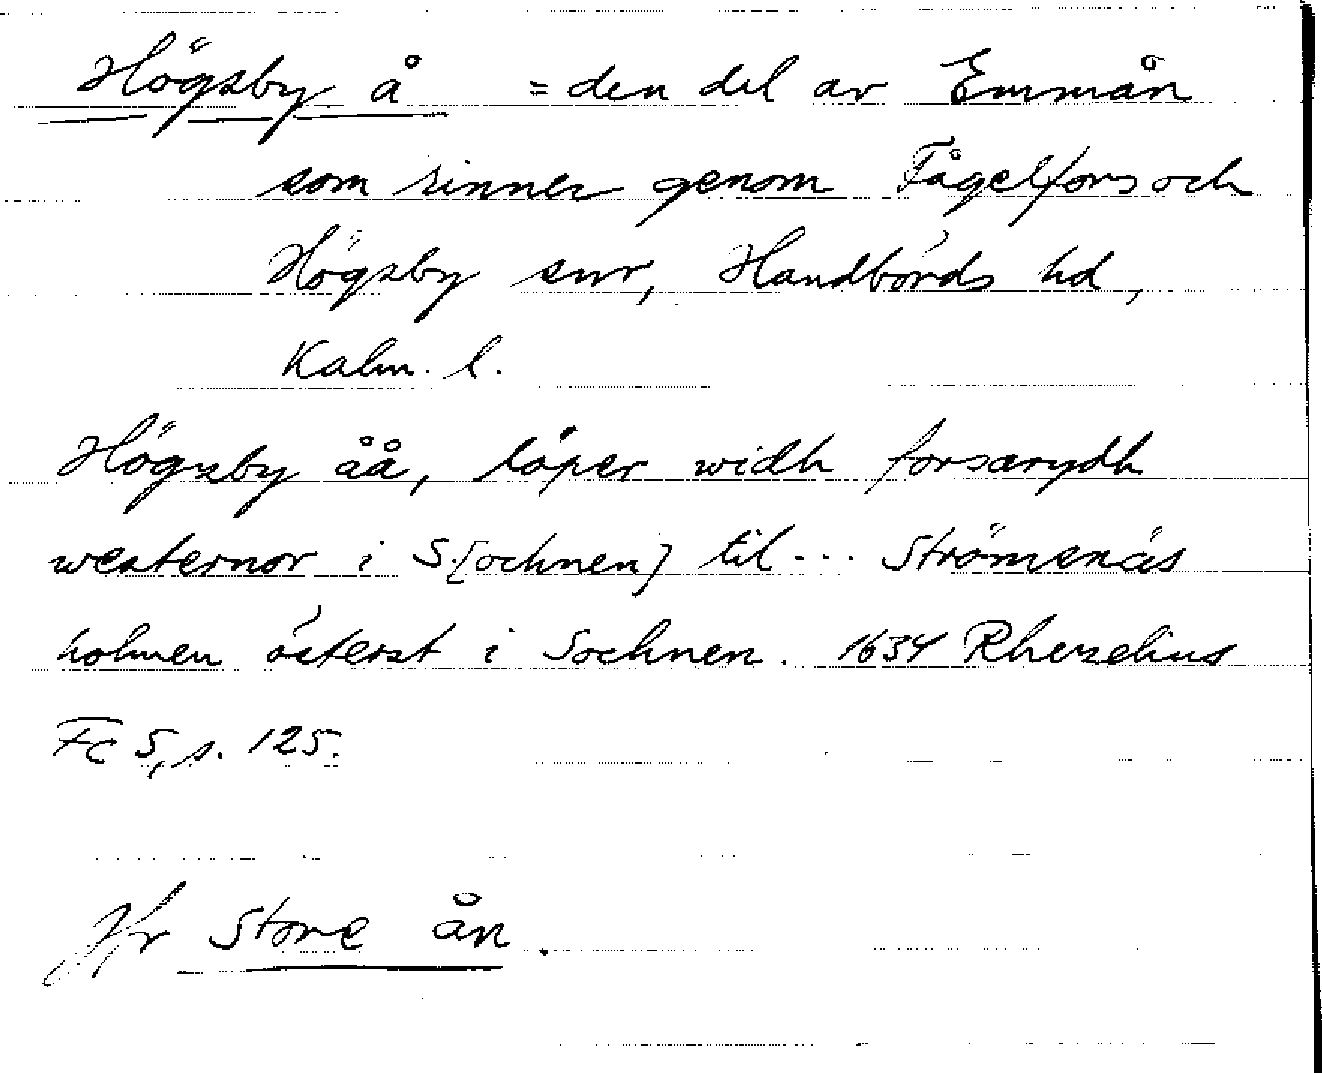 Högsby å = den del av Emmån
som rinner genom Fågelfors och
Högsby snr, Handbörds hd,
Kalm. l.
Högzby åå, löper widh forsarydh
westernor i S.[ochnen] til... Strömenäs
holmen österst i Sochnen. 1634 Rhezelius
Fc 5, s. 125.
Jfr Store ån.